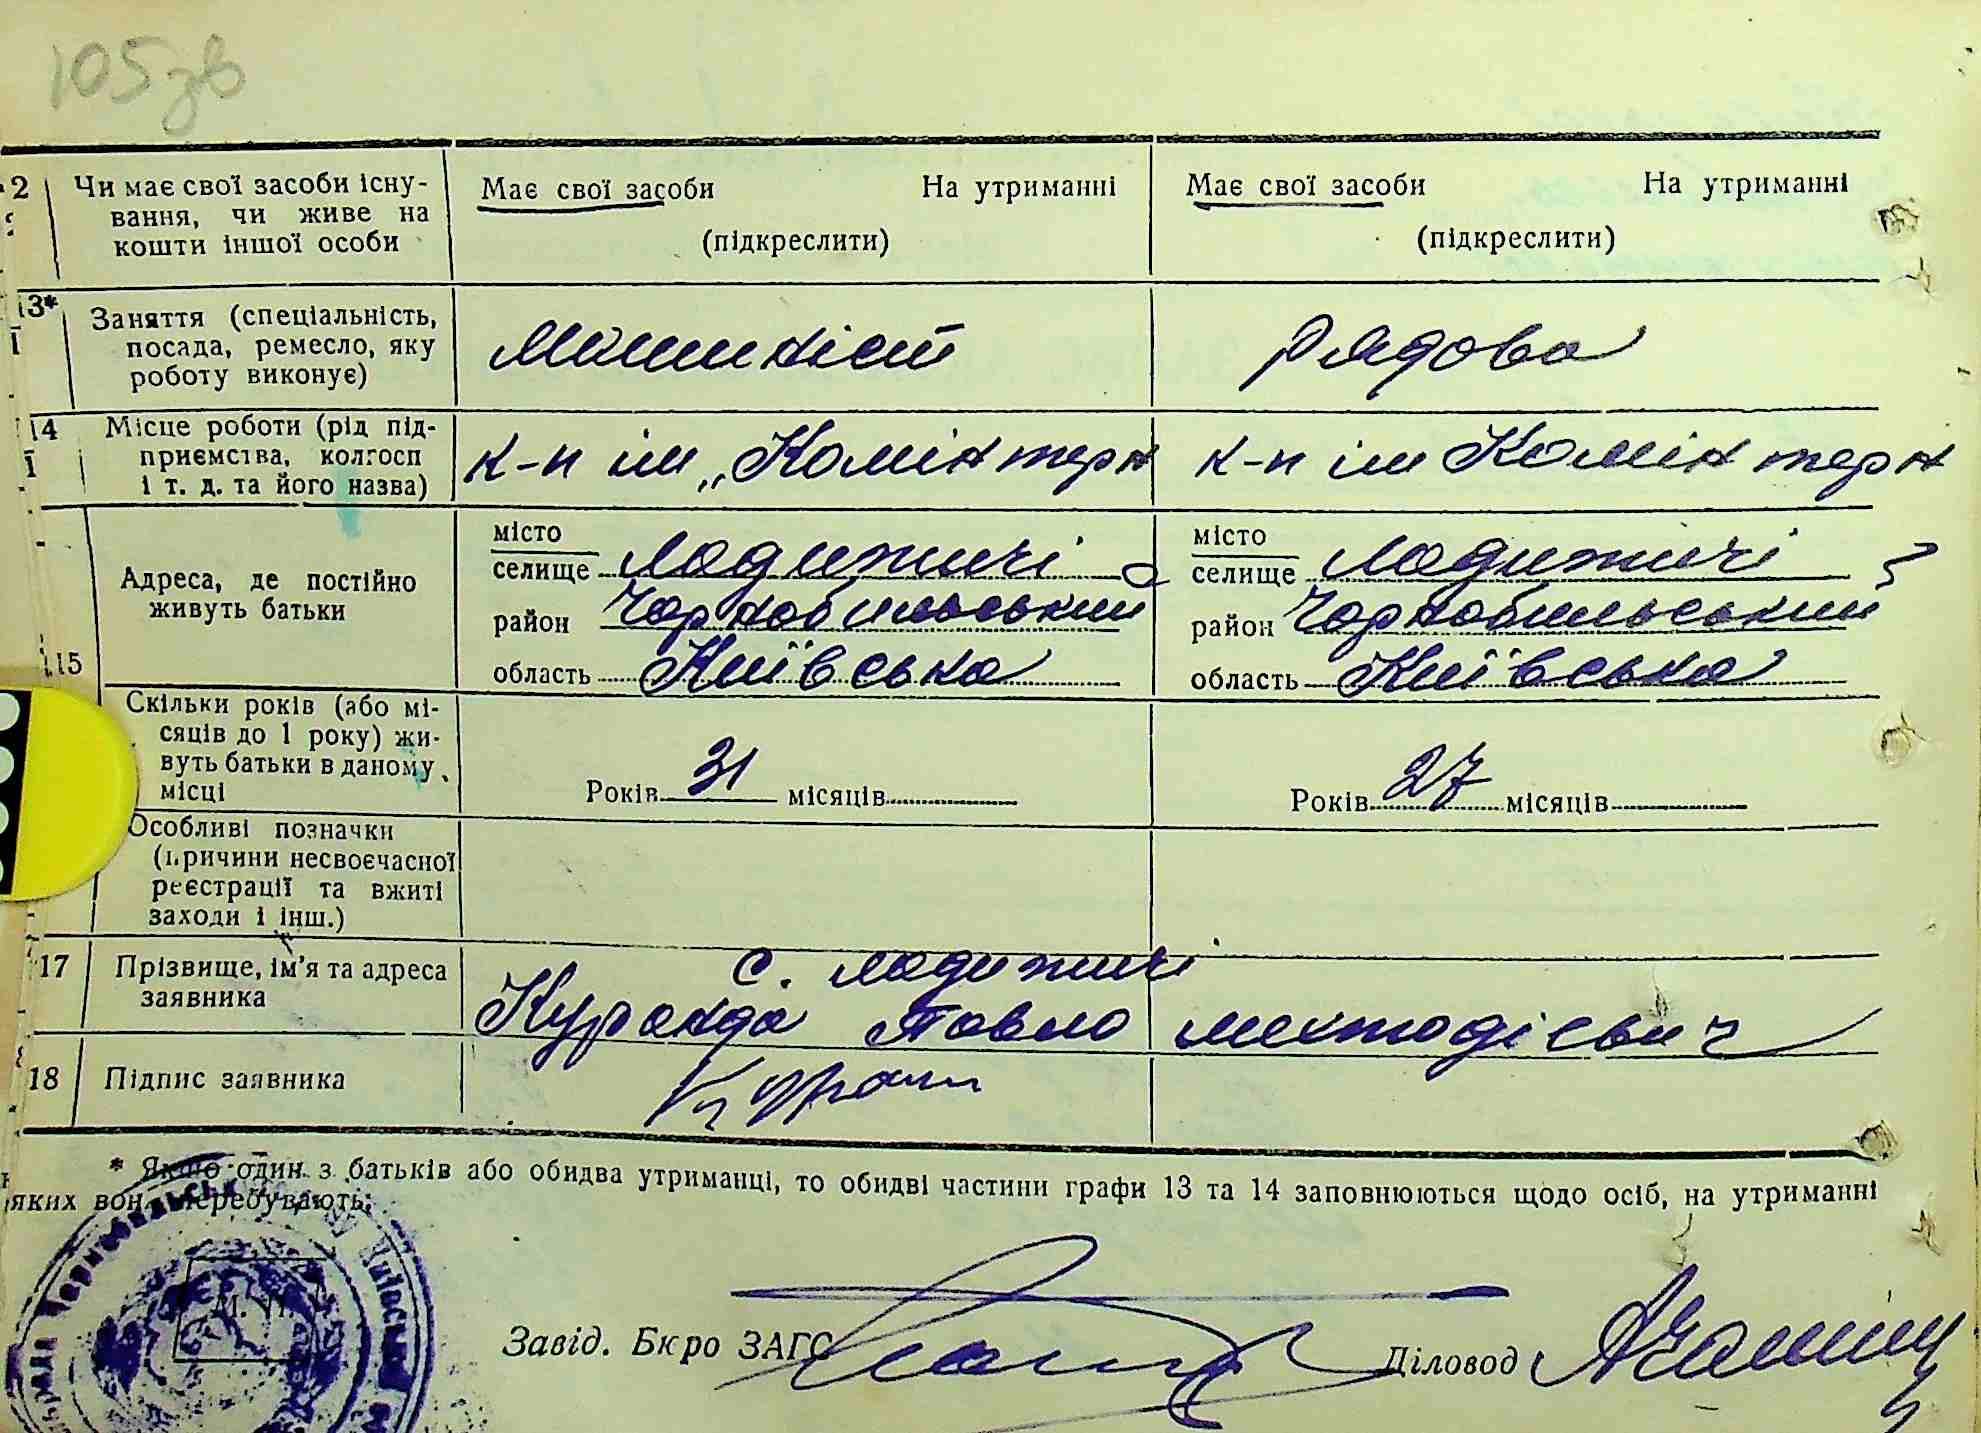 105зв
2 Чи має свої засоби існу-
вання, чи живе на
кошти іншої особи
Має свої засоби На утриманні
(підкреслити)
Має свої засоби На утриманні
(підкреслити)
13* Заняття (спеціальність,
посада, ремесло, яку
роботу виконує)
Машиніст
Рядова
14 Місце роботи (рід під-
приємства, колгосп
і т. д. та його назва)
к-п ім „Комінтерн
к-п ім Комінтерн
15 Адреса, де постійно
живуть батьки
місто
селище Ладижичі
район Чорнобильський
область Київська
місто
селище Ладижичі
район Чорнобильський
область Київська
Скільки років (або мі-
сяців до 1 року) жи-
вуть батьки в даному
місці
Років 31 місяців
Років 27 місяців
Особливі позначки
(причини несвоєчасної
реєстрації та вжиті
заходи і інш.)
17 Прізвище, ім'я та адреса
заявника
с. Ладижичі
Куранда Павло Мехтодієвич
18 Підпис заявника
* Якщо один з батьків або обидва утриманці, то обидві частини графи 13 та 14 заповнюються щодо осіб, на утриманні
яких вони перебувають.
М. П.
Завід. Бюро ЗАГС
Діловод